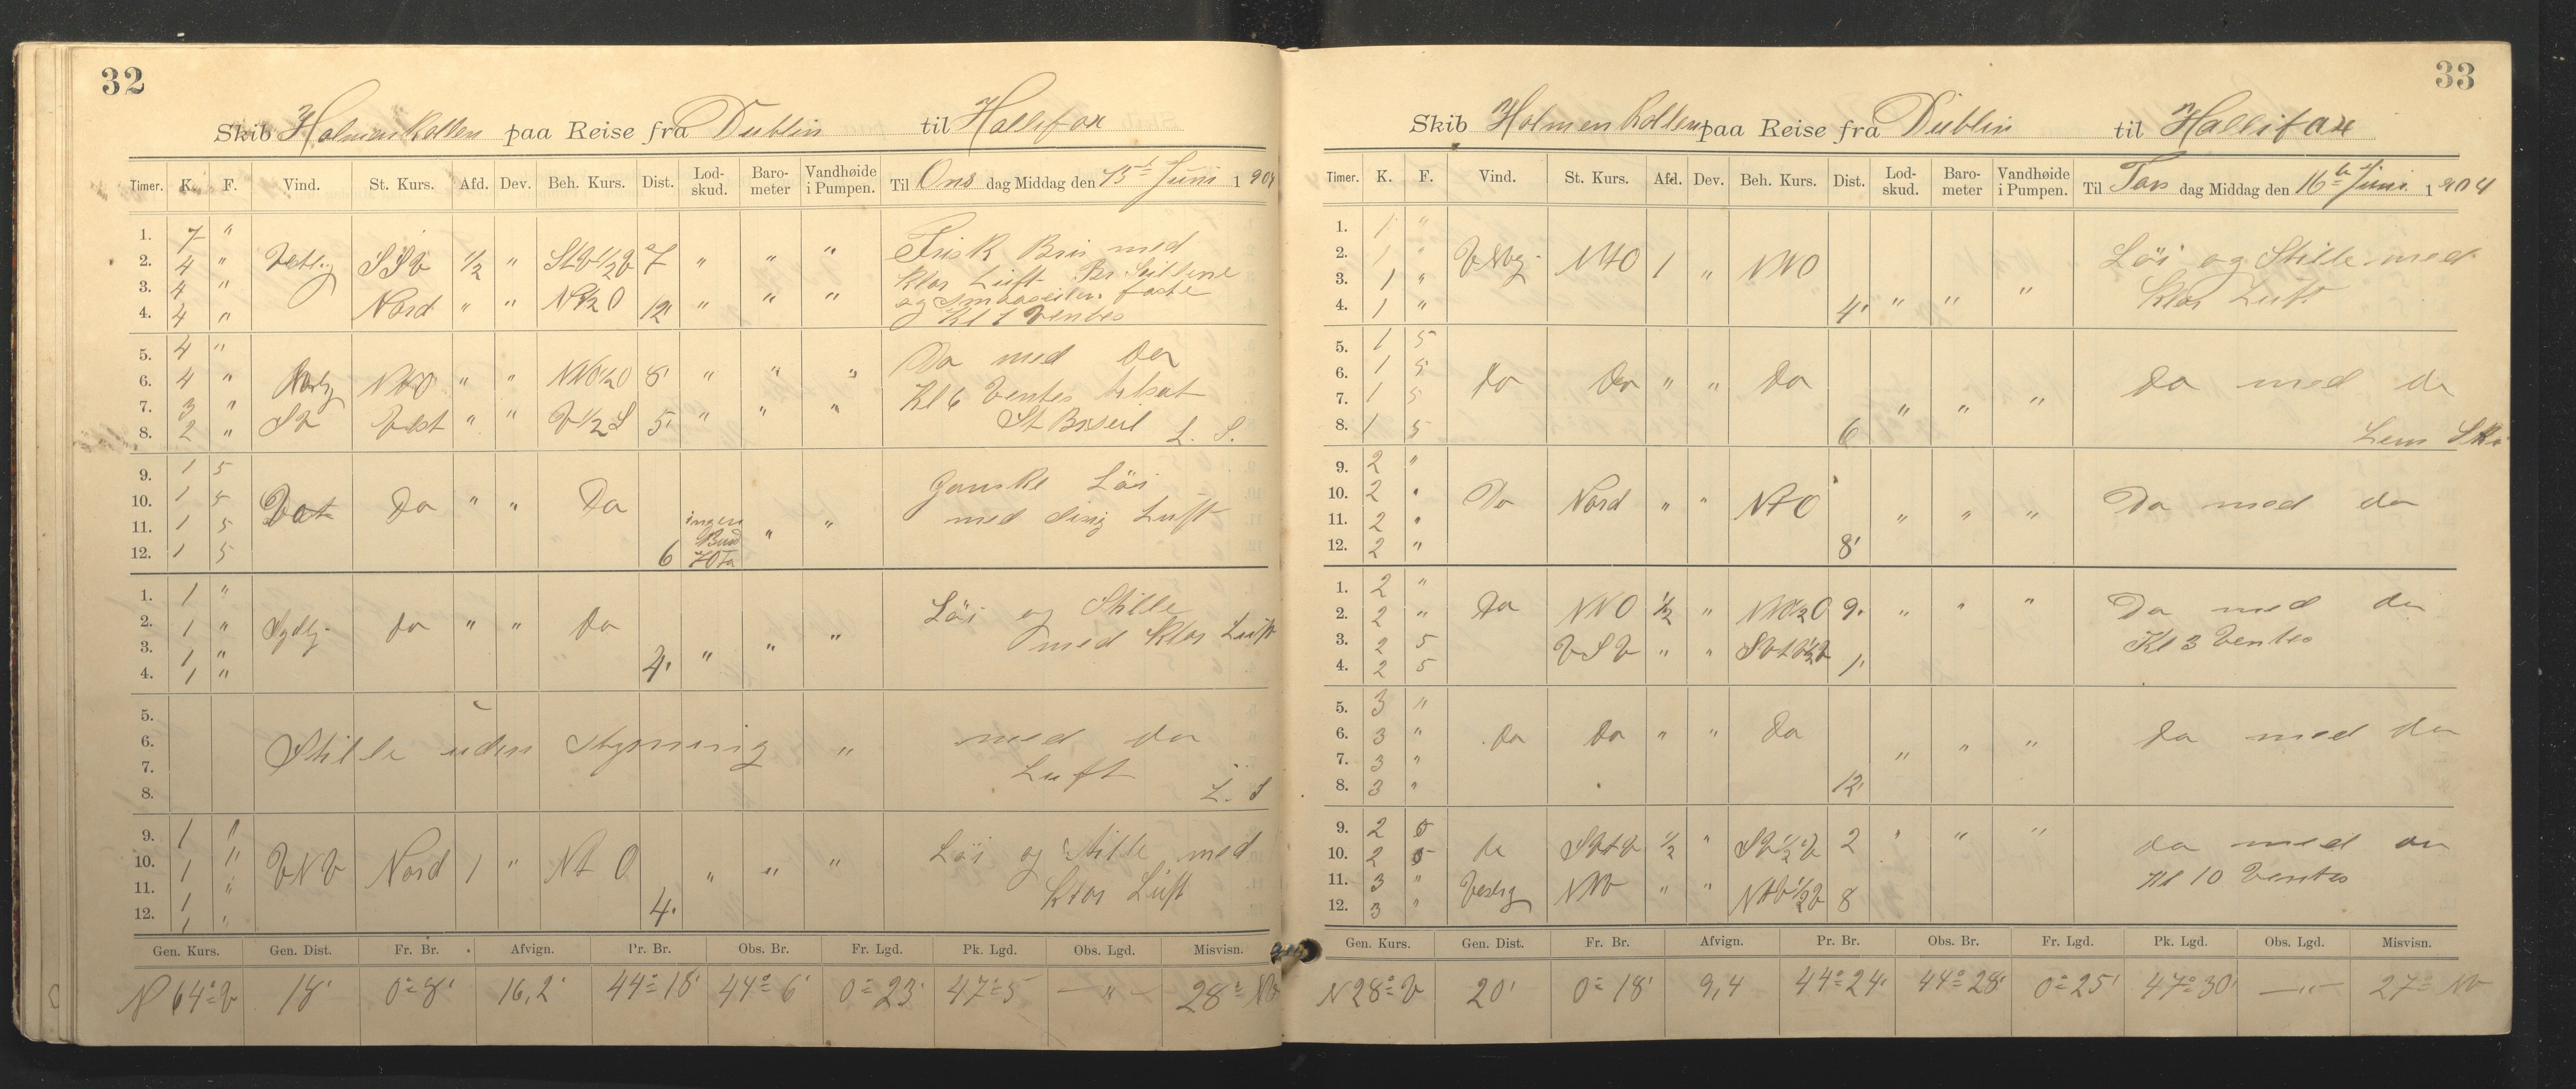 32
Skib Holmenkollen paa Reise fra Dublin til Hallifax
Timer. K. F. Vind. St. Kurs. Afd. Dev. Beh. Kurs. Dist. Lod-skud. Baro-meter Vandhøide i Pumpen. Til Ons dag Middag den 15de Juni 1904
1. 7 "
2. 4 " Vestlig SSV 1/2 " StV1/2V 7 " " " Frisk Bris med
3. 4 " Klar Luft Br. Seilene
4. 4 " Nord " " N1/2O 12' " " " og Smaaseilene faste
Kl 1 Ventes
5. 4 " Do med Do
6. 4 " Nordlig NtO " " NtO1/2O 8' " " " Kl 6 Ventes tilsat
7. 3 "
8. 2 " SV Vest " " V1/2S 5' " " " St Br seil L. S.
9. 1 5 Ganske Löi
10. 1 5 Vest Do " " Do med disig Luft
11. 1 5 ingen " "
12. 1 5 6 Bund 70 fa
1. 1 " Löi og Stille
2. 1 " Sydlig Do " " Do med Klar Luft
3. 1 "
4. 1 " 4' " " "
5.
6. Stille uden Styrning " med do
7. Luft
8. L. S
9. 1 "
10. 1 " VNV Nord 1 " Nt O " " " Löi og Stille med
11. 1 " Klar Luft
12. 1 " 4'
Gen. Kurs. Gen. Dist. Fr. Br. Afvign. Pr. Br. Obs. Br. Fr. Lgd. Pk. Lgd. Obs. Lgd. Misvisn.
N 64° V 18' 0° 8' 16,2' 44° 18' 44° 6' 0° 23' 47° 5 — " — 28° NV
33
Skib Holmenkollen paa Reise fra Dublin til Hallifax
Timer. K. F. Vind. St. Kurs. Afd. Dev. Beh. Kurs. Dist. Lod-skud. Baro-meter Vandhøide i Pumpen. Til Tors dag Middag den 16de Juni 1904
1. 1 "
2. 1 " NtO 1 " NNO Löi og Stille med
3. 1 " Klar Luft
4. 1 " 4' " " "
5. 1 5
6. 1 5 Do Do " " Do Do med do
7. 1 5 " " "
8. 1 5 6
9. 2 "
10. 2 " Do Nord " " NtO Do med do
11. 2 " " " "
12. 2 " 8'
1. 2 "
2. 2 " Do NNO 1/2 " 9' " " " Do med do
3. 2 5 VSV " " Kl 3 Ventes
4. 2 5 1'
5. 3 "
6. 3 " Do Do " " Do Do med do
7. 3 " " " "
8. 3 " 12'
9. 2 5
10. 2 5 do SVtV 1/2 " SV1/2V 2 " " " do med do
11. 3 " Vestlig NNV " " NtV1/2V Kl 10 Ventes
12. 3 " 8
Gen. Kurs. Gen. Dist. Fr. Br. Afvign. Pr. Br. Obs. Br. Fr. Lgd. Pk. Lgd. Obs. Lgd. Misvisn.
N 28° V 20' 0° 18' 9,4 44° 24' 44° 28' 0° 25' 47° 30' — " — 27° NV